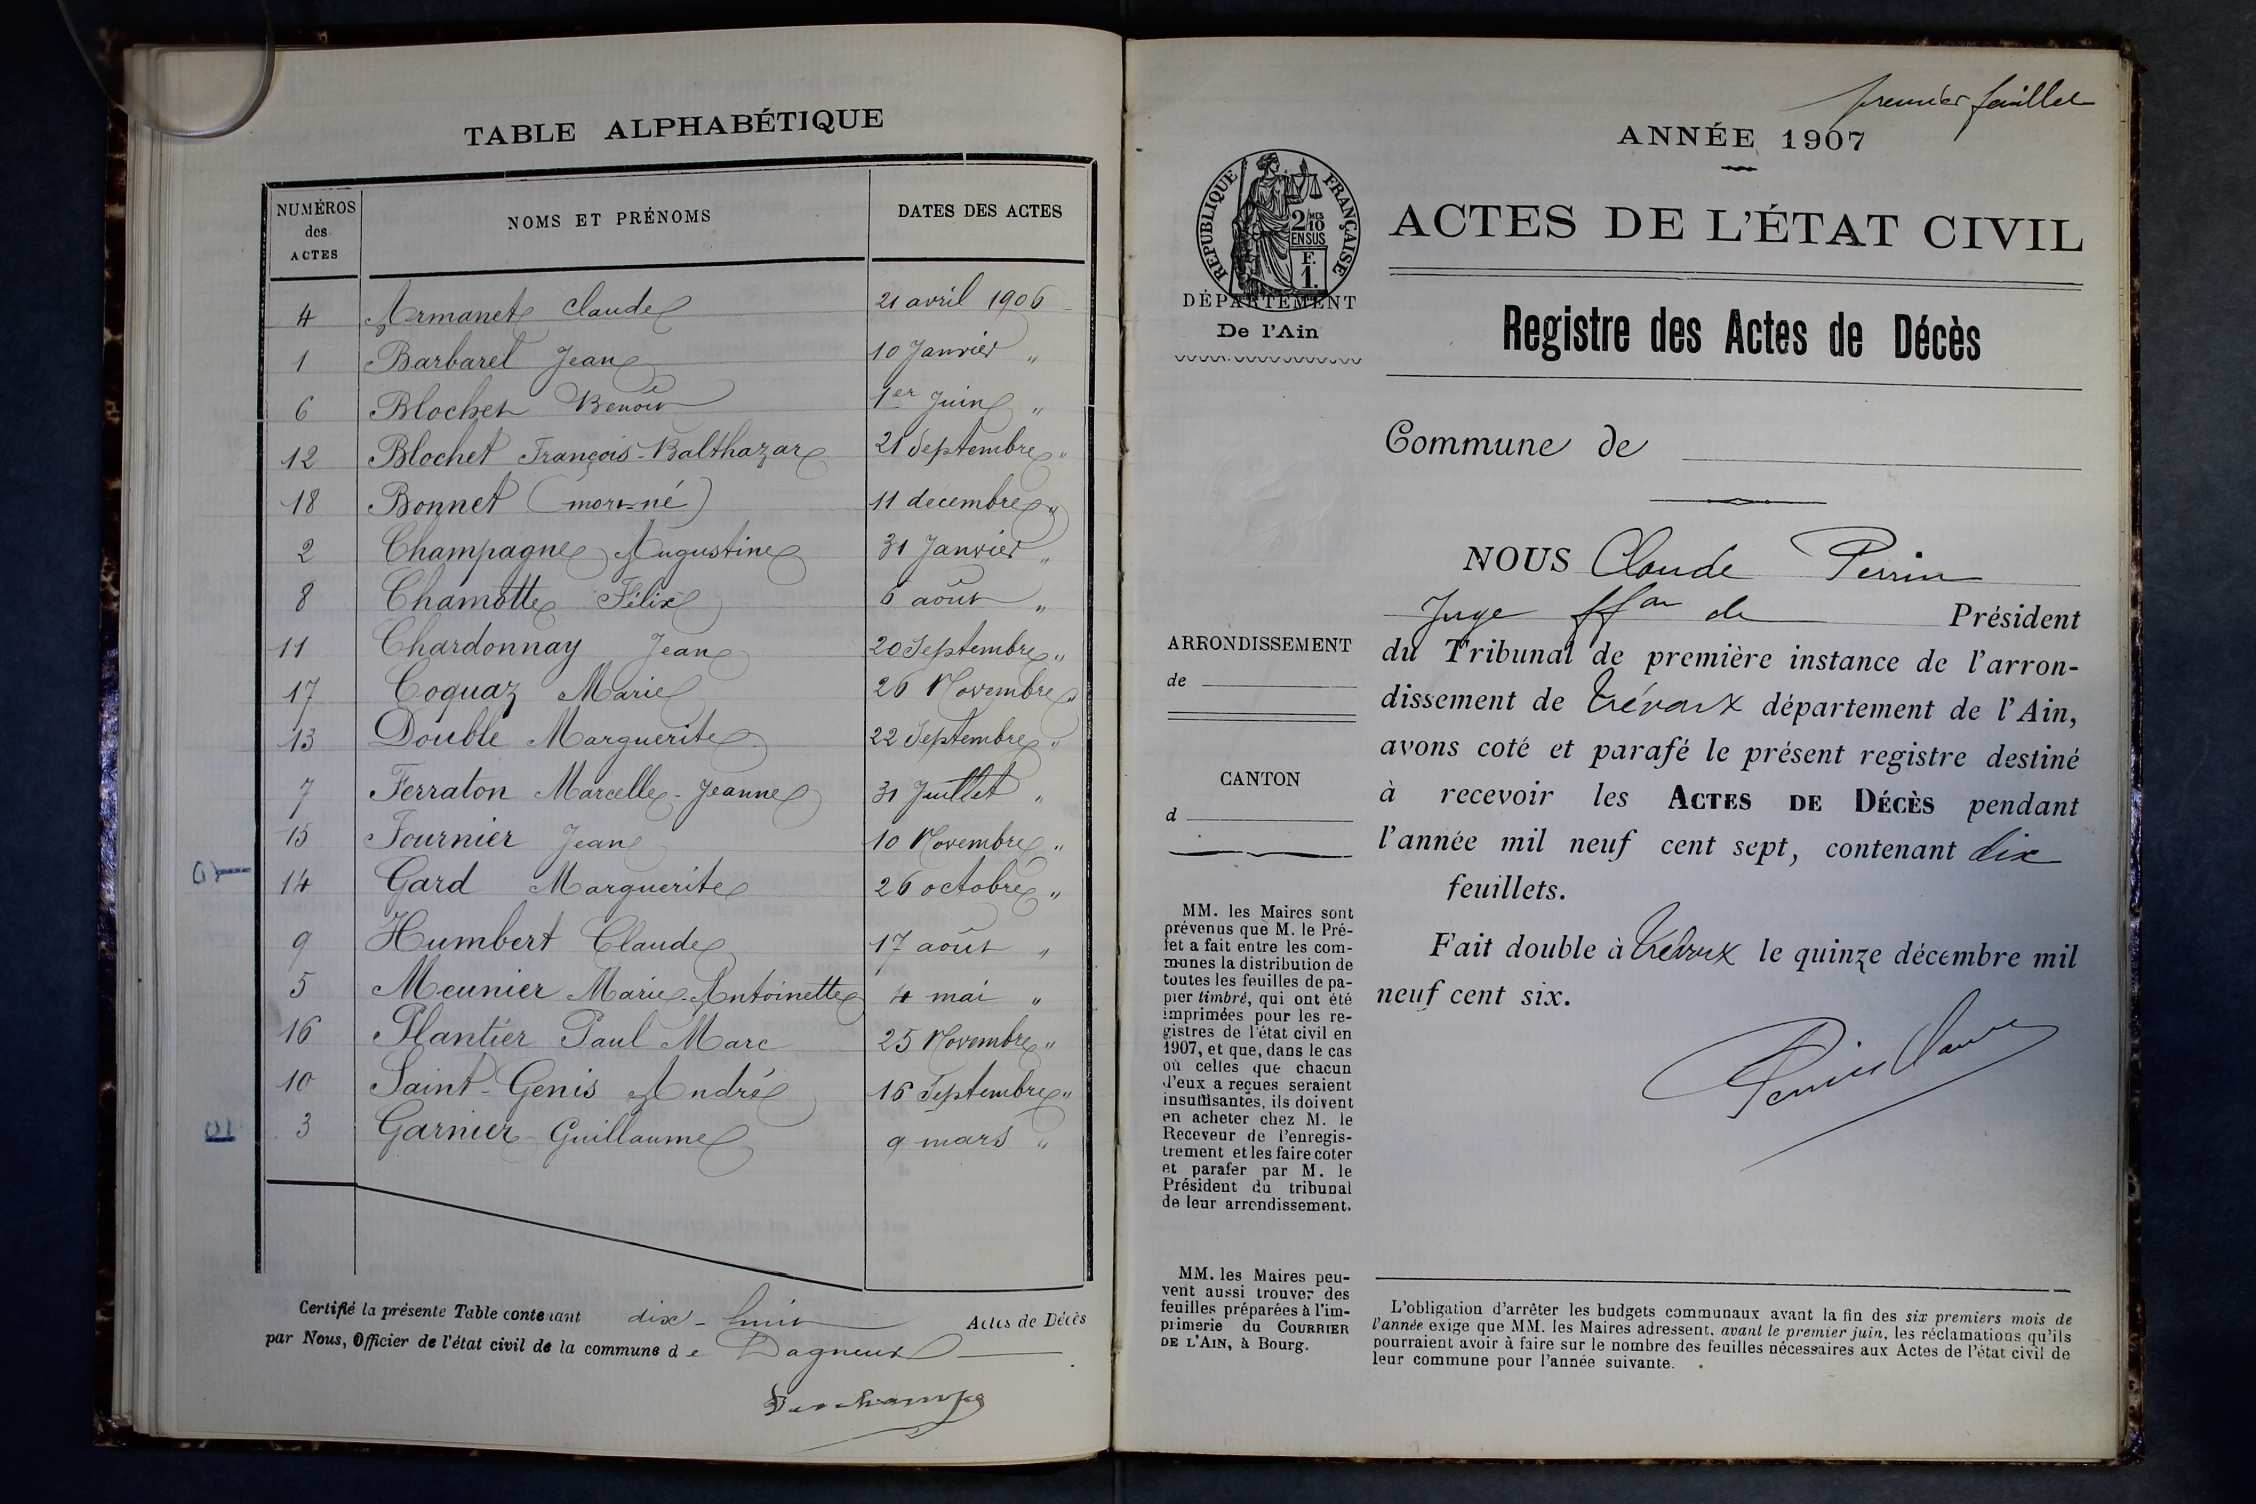 TABLE ALPHABÉTIQUE
NUMÉROS des ACTES NOMS ET PRÉNOMS DATES DES ACTES
4 Armanet Claude 21 avril 1906
1 Barbaret Jean 10 Janvier "
6 Blochet Benoit 1er Juin "
12 Blochet François-Balthazar 21 Septembre "
18 Bonnet (mort-né) 11 décembre "
2 Champagne Augustine 31 Janvier "
8 Chamotte Félix 6 août "
11 Chardonnay Jean 20 Septembre "
17 Coquaz Marie 26 Novembre "
13 Double Marguerite 22 Septembre "
7 Ferraton Marcelle-Jeanne 31 Juillet "
15 Fournier Jean 10 Novembre "
14 Gard Marguerite 26 octobre "
9 Humbert Claude 17 août "
5 Meunier Marie-Antoinette 4 mai "
16 Plantier Paul Marc 25 Novembre "
10 Saint-Genis André 16 Septembre "
3 Garnier Guillaume 9 mars "
Certifié la présente Table contenant dix-huit Actes de Décès
par Nous, Officier de l'état civil de la commune de Dagneux
Deschamps
premier feuillet
ANNÉE 1907
RÉPUBLIQUE FRANÇAISE
2/10 MES
EN SUS
F.
1.
ACTES DE L'ÉTAT CIVIL
DÉPARTEMENT
De l'Ain
Registre des Actes de Décès
Commune de
NOUS Claude Perrin
Juge ffon de Président
du Tribunal de première instance de l'arron-
dissement de Trévoux département de l'Ain,
avons coté et parafé le présent registre destiné
à recevoir les ACTES DE DÉCÈS pendant
l'année mil neuf cent sept, contenant dix
feuillets.
Fait double à Trévoux le quinze décembre mil
neuf cent six.
Perrin Claude
ARRONDISSEMENT
de
CANTON
d
MM. les Maires sont
prévenus que M. le Pré-
fet a fait entre les com-
munes la distribution de
toutes les feuilles de pa-
pier timbré, qui ont été
imprimées pour les re-
gistres de l'état civil en
1907, et que, dans le cas
où celles que chacun
d'eux a reçues seraient
insuffisantes, ils doivent
en acheter chez M. le
Receveur de l'enregis-
trement et les faire coter
et parafer par M. le
Président du tribunal
de leur arrondissement.
MM. les Maires peu-
vent aussi trouver des
feuilles préparées à l'im-
primerie du COURRIER
DE L'AIN, à Bourg.
L'obligation d'arrêter les budgets communaux avant la fin des six premiers mois de
l'année exige que MM. les Maires adressent, avant le premier juin, les réclamations qu'ils
pourraient avoir à faire sur le nombre des feuilles nécessaires aux Actes de l'état civil de
leur commune pour l'année suivante.